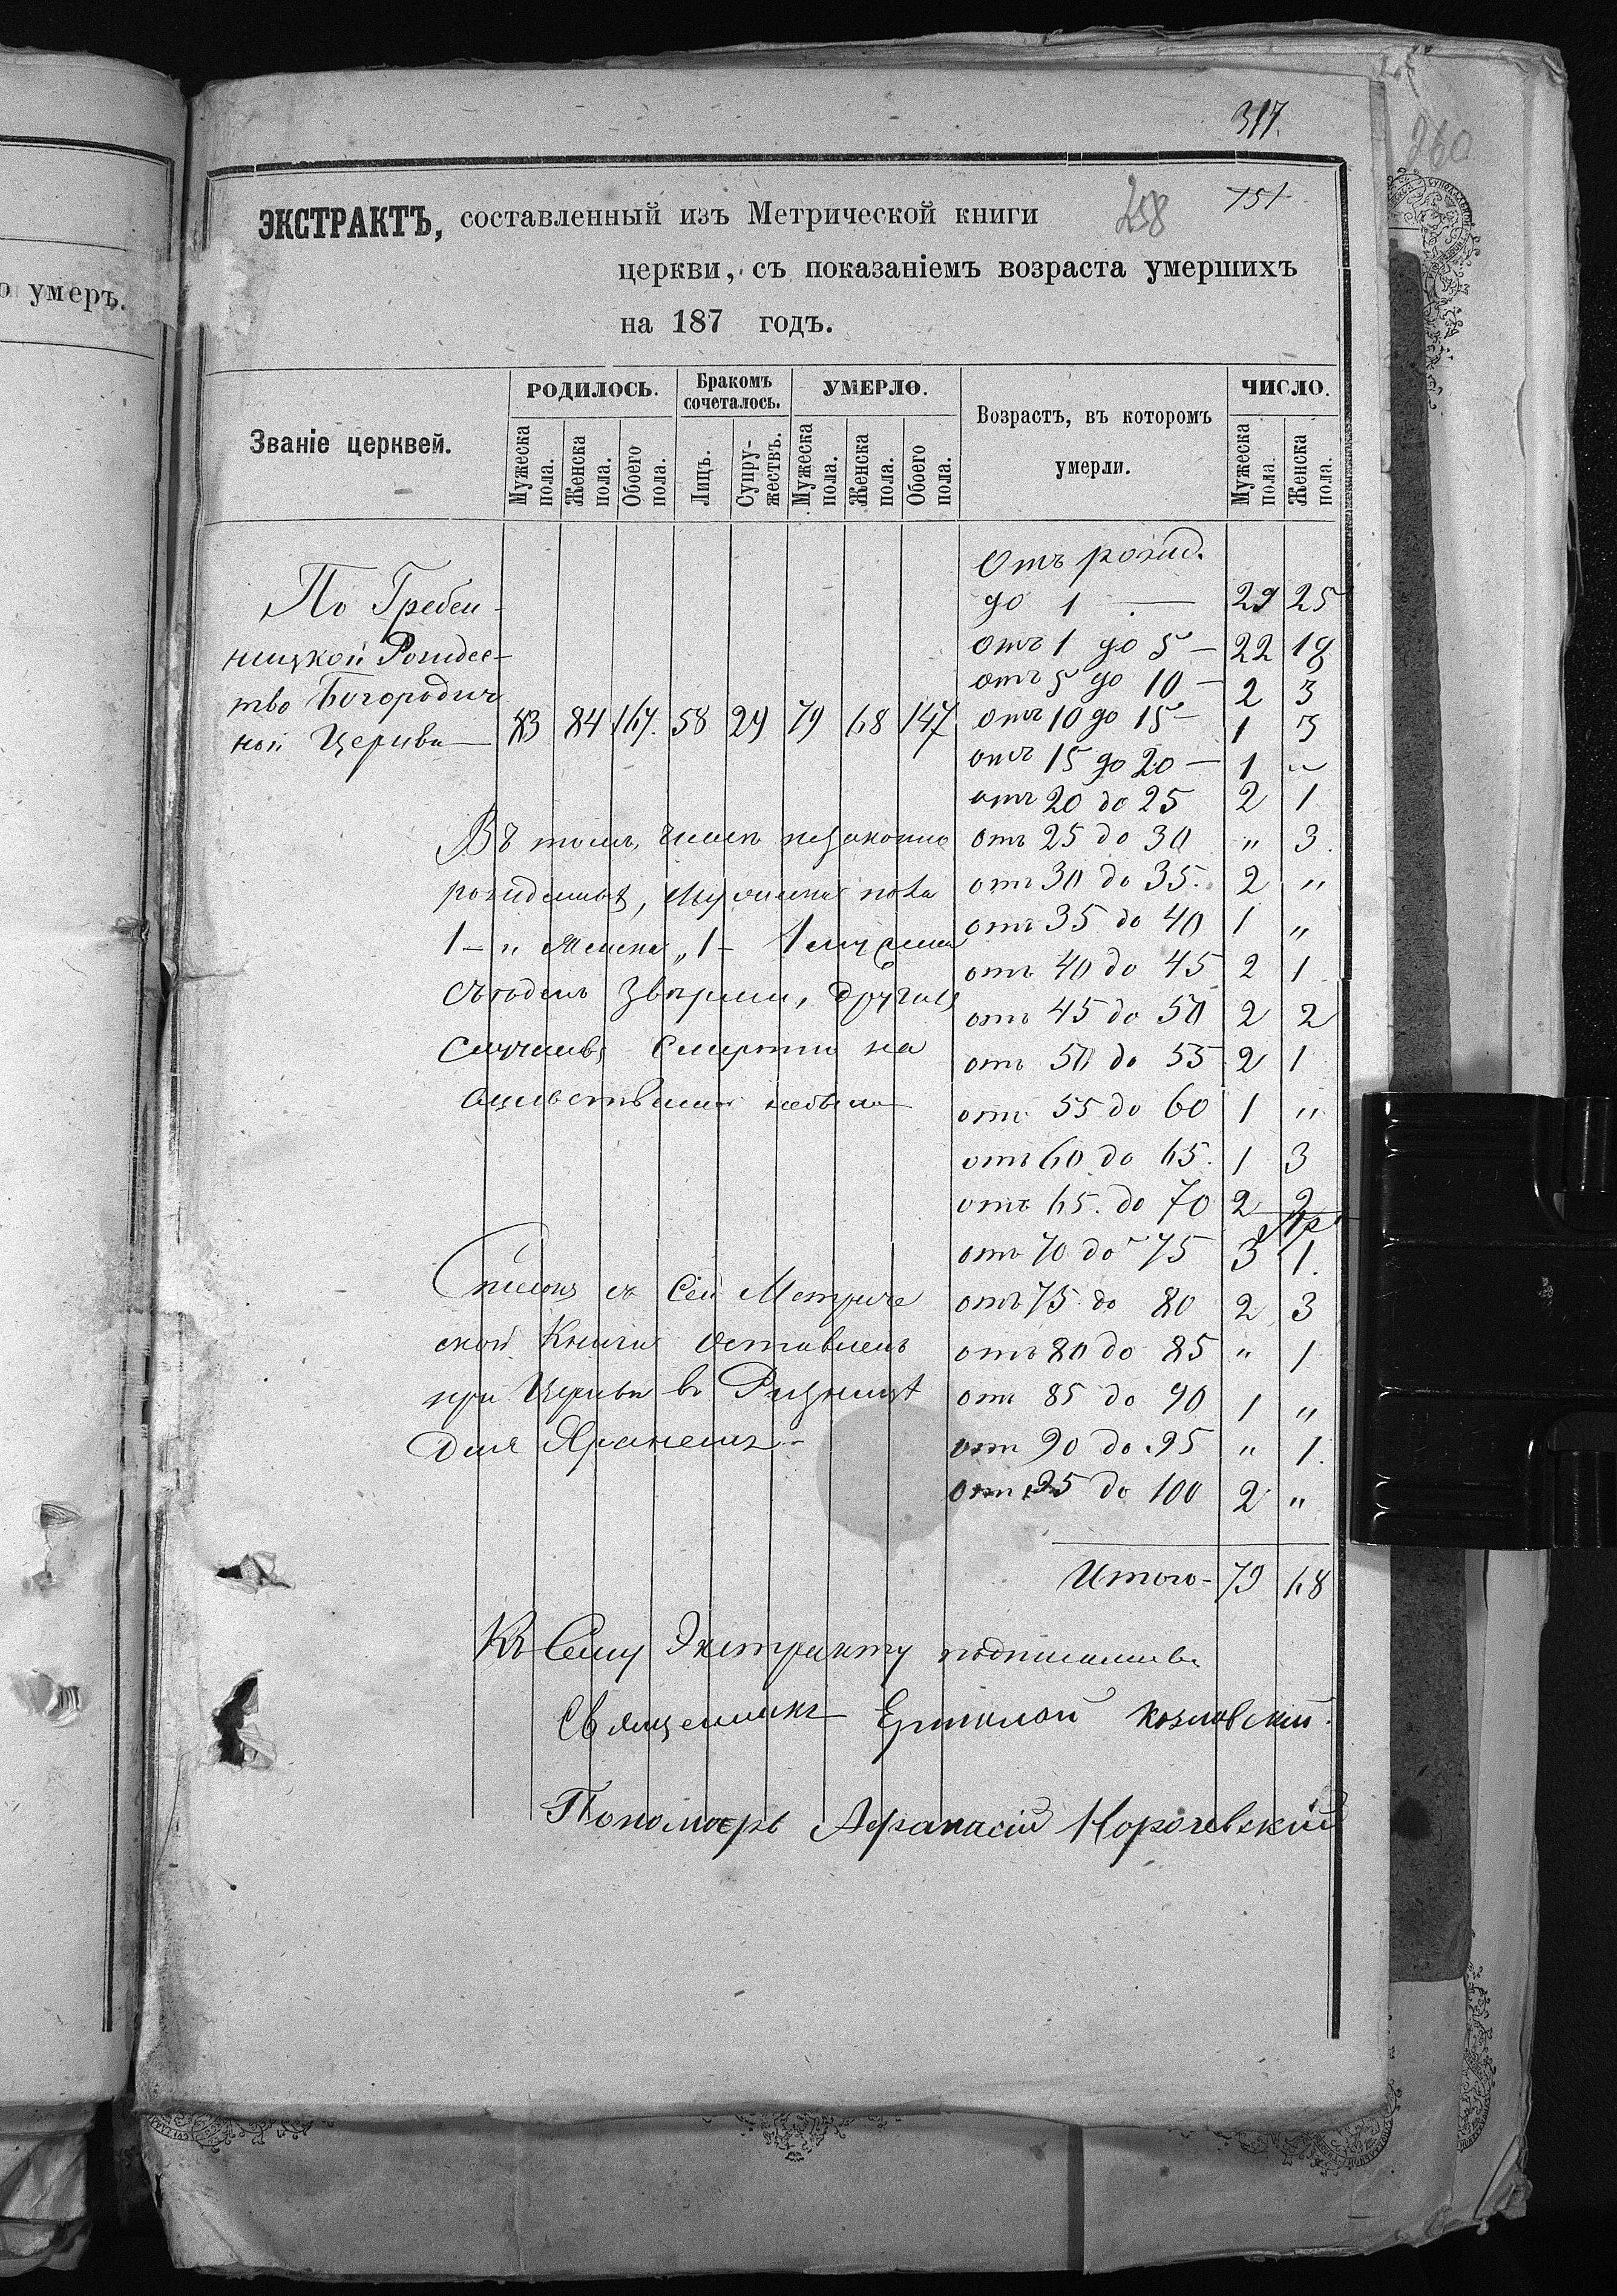 317.
260
258
751
о умеръ.
ЭКСТРАКТЪ, составленный изъ Метрической книги
церкви, съ показаніемъ возраста умершихъ
на 187 годъ.
Званіе церквей.
РОДИЛОСЬ.
Мужеска пола.
Женска пола.
Обоего пола.
Бракомъ сочеталось.
Лицъ.
Супружествъ.
УМЕРЛО.
Мужеска пола.
Женска пола.
Обоего пола.
Возрастъ, въ которомъ
умерли.
ЧИСЛО.
Мужеска пола.
Женска пола.
По Гребен-
ницкой Рождес-
тво Богородич
ной Церкви 83 84 167. 58 29 79 68 147
Въ томъ числѣ незаконно
рожденныхъ, мужеска пола
1 - " Женска " 1 -
съѣденъ звѣремъ, другихъ
случаевъ смерти на
небыло
Списокъ съ сей Метриче
ской Книги оставленъ
при Церкви въ Ризницѣ
для Храненія
Отъ рожд.
до 1 — 29 25
отъ 1 до 5 — 22 18
отъ 5 до 10 — 2 3
отъ 10 до 15 — 1 3
отъ 15 до 20 — 1 "
отъ 20 до 25 2 1
отъ 25 до 30 " 3.
отъ 30 до 35. 2 "
отъ 35 до 40 1 "
отъ 40 до 45 2 1
отъ 45 до 50 2 2
отъ 50 до 55 2 1
отъ 55 до 60 1 "
отъ 60 до 65. 1 3
отъ 65. до 70 2 2
отъ 70 до 75 3 1.
отъ 75 до 80 2 3
отъ 80 до 85 " 1
отъ 85 до 90 1 "
отъ 90 до 95 " 1.
отъ 95 до 100 2 "
Итого - 79 68
Къ Сему Экстракту подписались
Священникъ Ермолай Козловскій.
Пономарь Афанасій Корчевскій